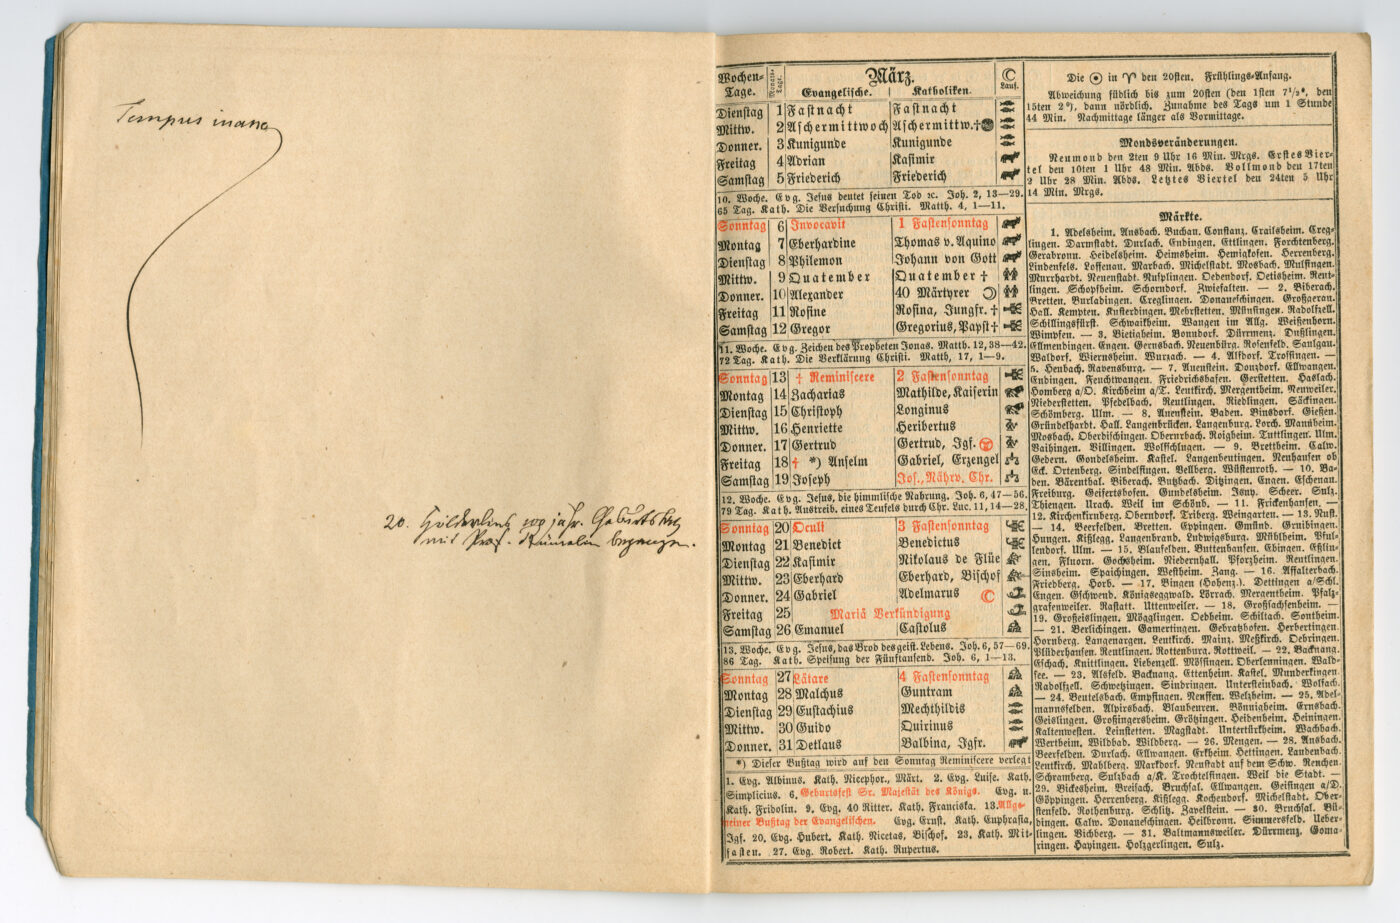 Tempus inane
20. Hölderlins 100 jähr. Geburtstag
mit Prof. Kümelin begangen.
Wochen-
Tage.
Monats-
Tage.
März.
Evangelische.
Katholiken.
Lauf.
Dienstag 1 Fastnacht Fastnacht
Mittw. 2 Aschermittwoch Aschermittw.†
Donner. 3 Kunigunde Kunigunde
Freitag 4 Adrian Kasimir
Samstag 5 Friederich Friederich
10. Woche. Evg. Jesus deutet seinen Tod ꝛc. Joh. 2, 13—29.
65 Tag. Kath. Die Versuchung Christi. Matth. 4, 1—11.
Sonntag 6 Invocavit 1 Fastensonntag
Montag 7 Eberhardine Thomas v. Aquino
Dienstag 8 Philemon Johann von Gott
Mittw. 9 Quatember Quatember †
Donner. 10 Alexander 40 Märtyrer ☽
Freitag 11 Rosine Rosina, Jungfr. †
Samstag 12 Gregor Gregorius, Papst †
11. Woche. Evg. Zeichen des Propheten Jonas. Matth. 12, 38—42.
72 Tag. Kath. Die Verklärung Christi. Matth, 17, 1—9.
Sonntag 13 † Reminiscere 2 Fastensonntag
Montag 14 Zacharias Mathilde, Kaiserin
Dienstag 15 Christoph Longinus
Mittw. 16 Henriette Heribertus
Donner. 17 Gertrud Gertrud, Jgf.
Freitag 18 † *) Anselm Gabriel, Erzengel
Samstag 19 Joseph Jos., Nährv. Chr.
12. Woche. Evg. Jesus, die himmlische Nahrung. Joh. 6, 47—56.
79 Tag. Kath. Austreib. eines Teufels durch Chr. Luc. 11, 14—28.
Sonntag 20 Oculi 3 Fastensonntag
Montag 21 Benedict Benedictus
Dienstag 22 Kasimir Nikolaus de Flüe
Mittw. 23 Eberhard Eberhard, Bischof
Donner. 24 Gabriel Adelmarus ☾
Freitag 25 Mariä Verkündigung
Samstag 26 Emanuel Castolus
13. Woche. Evg. Jesus, das Brod des geist. Lebens. Joh. 6, 57—69.
86 Tag. Kath. Speisung der Fünftausend. Joh. 6, 1—13.
Sonntag 27 Lätare 4 Fastensonntag
Montag 28 Malchus Guntram
Dienstag 29 Eustachius Mechthildis
Mittw. 30 Guido Quirinus
Donner. 31 Detlaus Balbina, Jgfr.
*) Dieser Bußtag wird auf den Sonntag Reminiscere verlegt
1. Evg. Albinus. Kath. Nicephor., Märt. 2. Evg. Luise. Kath.
Simplicius. 6. Geburtsfest Sr. Majestät des Königs. Evg. u.
Kath. Fridolin. 9. Evg. 40 Ritter. Kath. Franciska. 13. Allge-
meiner Bußtag der Evangelischen. Evg. Ernst. Kath. Euphrasia,
Jgf. 20. Evg. Hubert. Kath. Nicetas, Bischof. 23. Kath. Mit-
fasten. 27. Evg. Robert. Kath. Rupertus.
Die ☉ in ♈ den 20sten. Frühlings-Anfang.
Abweichung südlich bis zum 20sten (den 1sten 7½°, den
15ten 2°), dann nördlich. Zunahme des Tags um 1 Stunde
44 Min. Nachmittage länger als Vormittage.
Mondsveränderungen.
Neumond den 2ten 9 Uhr 16 Min. Mrgs. Erstes Vier-
tel den 10ten 1 Uhr 48 Min. Abds. Vollmond den 17ten
2 Uhr 28 Min. Abds. Letztes Viertel den 24ten 5 Uhr
14 Min. Mrgs.
Märkte.
1. Adelsheim. Ansbach. Buchau. Constanz. Crailsheim. Creg-
lingen. Darmstadt. Durlach. Endingen. Ettlingen. Forchtenberg.
Gerabronn. Heidelsheim. Heimsheim. Hemigkofen. Herrenberg.
Lindenfels. Loffenau. Marbach. Michelstadt. Mosbach. Mulfingen.
Murrhardt. Neuenstadt. Nusplingen. Oedendorf. Oetisheim. Reut-
lingen. Schopfheim. Schorndorf. Zwiefalten. — 2. Biberach.
Bretten. Burladingen. Creglingen. Donaueschingen. Großgerau.
Hall. Kempten. Kusterdingen. Mehrstetten. Münsingen. Radolfzell.
Schillingsfürst. Schwaikheim. Wangen im Allg. Weißenhorn.
Wimpfen. — 3. Bietigheim. Bonndorf. Dürrmenz. Dußlingen.
Ellmendingen. Engen. Gernsbach. Neuenbürg. Rosenfeld. Saulgau.
Waldorf. Wiernsheim. Wurzach. — 4. Alfdorf. Trossingen. —
5. Heubach. Ravensburg. — 7. Auenstein. Donzdorf. Ellwangen.
Endingen. Feuchtwangen. Friedrichshafen. Gerstetten. Haslach.
Homberg a/O. Kirchheim a/T. Leutkirch. Mergentheim. Neuweiler.
Niederstetten. Pfedelbach. Reutlingen. Riedlingen. Säckingen.
Schömberg. Ulm. — 8. Auenstein. Baden. Binsdorf. Gießen.
Gründelhardt. Hall. Langenbrücken. Langenburg. Lorch. Mannheim.
Mosbach. Oberdischingen. Obernrbach. Roigheim. Tuttlingen. Ulm.
Vaihingen. Villingen. Wolfschlugen. — 9. Brettheim. Calw.
Gedern. Gondelsheim. Kastel. Langenbeutingen. Neuhausen ob
Eck. Ortenberg. Sindelfingen. Vellberg. Wüstenroth. — 10. Ba-
den. Bärenthal. Biberach. Butzbach. Ditzingen. Engen. Eschenau.
Freiburg. Geifertshofen. Gundelsheim. Isny. Scheer. Sulz.
Thiengen. Urach. Weil im Schönb. — 11. Frickenhausen. —
12. Kirchenkirnberg. Oberndorf. Triberg. Weingarten. — 13. Nust.
— 14. Beerfelden. Bretten. Eppingen. Gmünd. Gruibingen.
Hungen. Kißlegg. Langenbrand. Ludwigsburg. Mühlheim. Pful-
lendorf. Ulm. — 15. Blaufelden. Buttenhausen. Ebingen. Eßlin-
gen. Fluorn. Gochsheim. Niedernhall. Pforzheim. Reutlingen.
Sinsheim. Spaichingen. Westheim. Zang. — 16. Affalterbach.
Friedberg. Horb. — 17. Bingen (Hohenz.). Dettingen a/Schl.
Engen. Gschwend. Königseggwald. Lörrach. Mergentheim. Pfalz-
grafenweiler. Rastatt. Uttenweiler. — 18. Großsachsenheim. —
19. Großeislingen. Mögglingen. Oedheim. Schiltach. Sontheim.
— 21. Berlichingen. Gamertingen. Gebrazhofen. Herbertingen.
Hornberg. Langenargen. Leutkirch. Mainz. Meßkirch. Oehringen.
Plüderhausen. Reutlingen. Rottenburg. Rottweil. — 22. Backnang.
Eschach. Knittlingen. Liebenzell. Mössingen. Oberlenningen. Wald-
see. — 23. Alsfeld. Backnang. Ettenheim. Kastel. Munderkingen.
Radolfzell. Schwetzingen. Sindringen. Untersteinbach. Wolfach.
— 24. Beutelsbach. Empfingen. Neuffen. Welzheim. — 25. Adel-
mannsfelden. Alpirsbach. Blaubeuren. Bönnigheim. Ernsbach.
Geislingen. Großingersheim. Grötzingen. Heidenheim. Heiningen.
Kaltenwesten. Leinstetten. Magstadt. Untertürkheim. Wachbach.
Wertheim. Wildbad. Wildberg. — 26. Mengen. — 28. Ansbach.
Beerfelden. Durlach. Ellwangen. Erkheim. Hettingen. Laudenbach.
Leutkirch. Mahlberg. Markdorf. Neustadt auf dem Schw. Renchen.
Schramberg. Sulzbach a/K. Trochtelfingen. Weil die Stadt. —
29. Bickesheim. Breisach. Bruchsal. Ellwangen. Geisingen a/D.
Göppingen. Herrenberg. Kißlegg. Kochendorf. Michelstadt. Ober-
stenfeld. Rothenburg. Schlitz. Zavelstein. — 30. Bruchsal. Bü-
dingen. Calw. Donaueschingen. Heilbronn. Simmersfeld. Ueber-
lingen. Vichberg. — 31. Baltmannsweiler. Dürrmenz. Goma-
ringen. Hayingen. Holzgerlingen. Sulz.